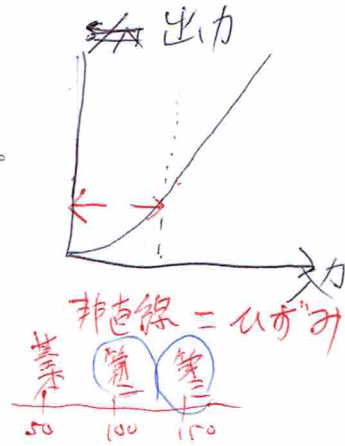 出力
入力
非直線=ひずみ
基本 第二 第三
50 100 150